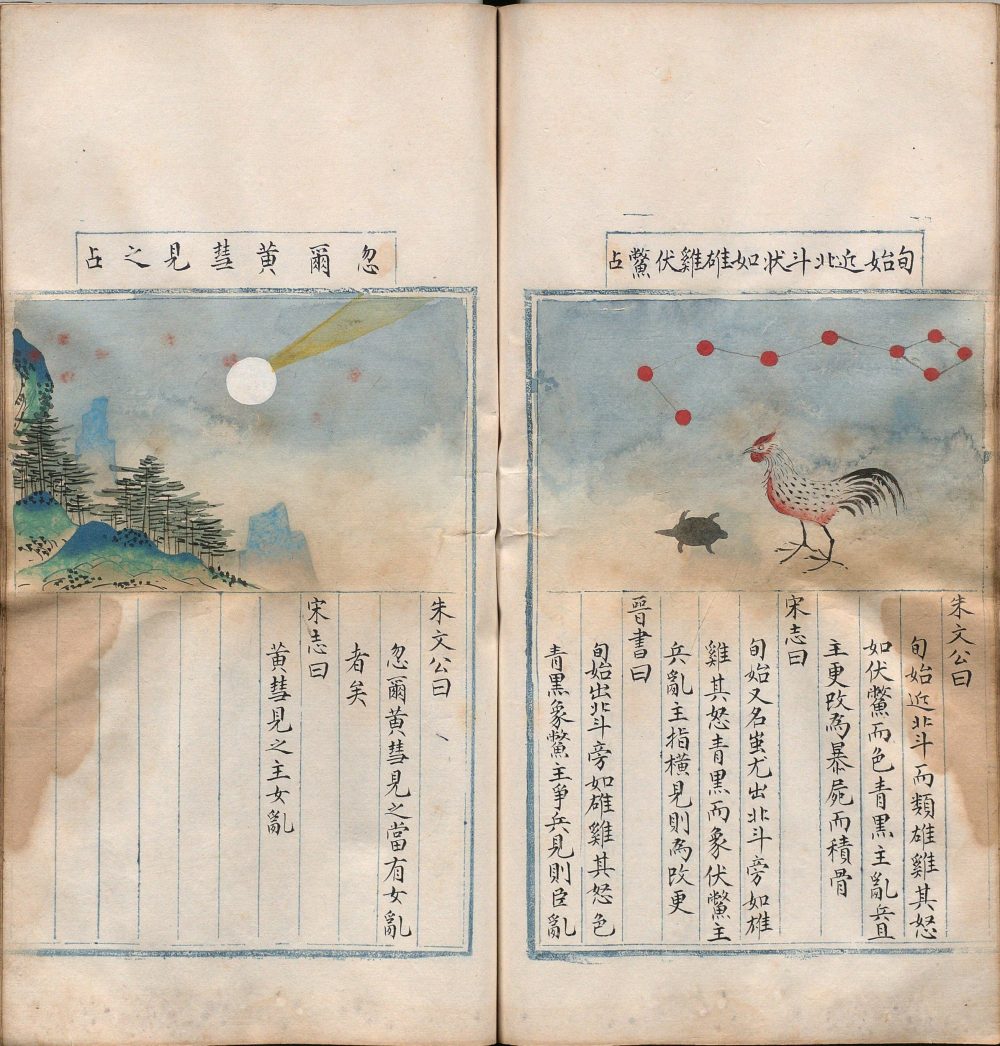 旬始近北斗狀如雄雞伏鱉占
朱文公曰
旬始近北斗而類雄雞其怒
如伏鱉而色青黑主亂兵直
主更改為暴屍而積骨
宋志曰
旬始又名蚩尤出北斗旁如雄
雞其怒青黑而象伏鱉主
兵亂主指橫見則為改更
晉書曰
旬始出北斗旁如雄雞其怒色
青黑象鱉主爭兵見則臣亂
忽爾黃彗見之占
朱文公曰
忽爾黃彗見之當有女亂
者矣
宋志曰
黃彗見之主女亂